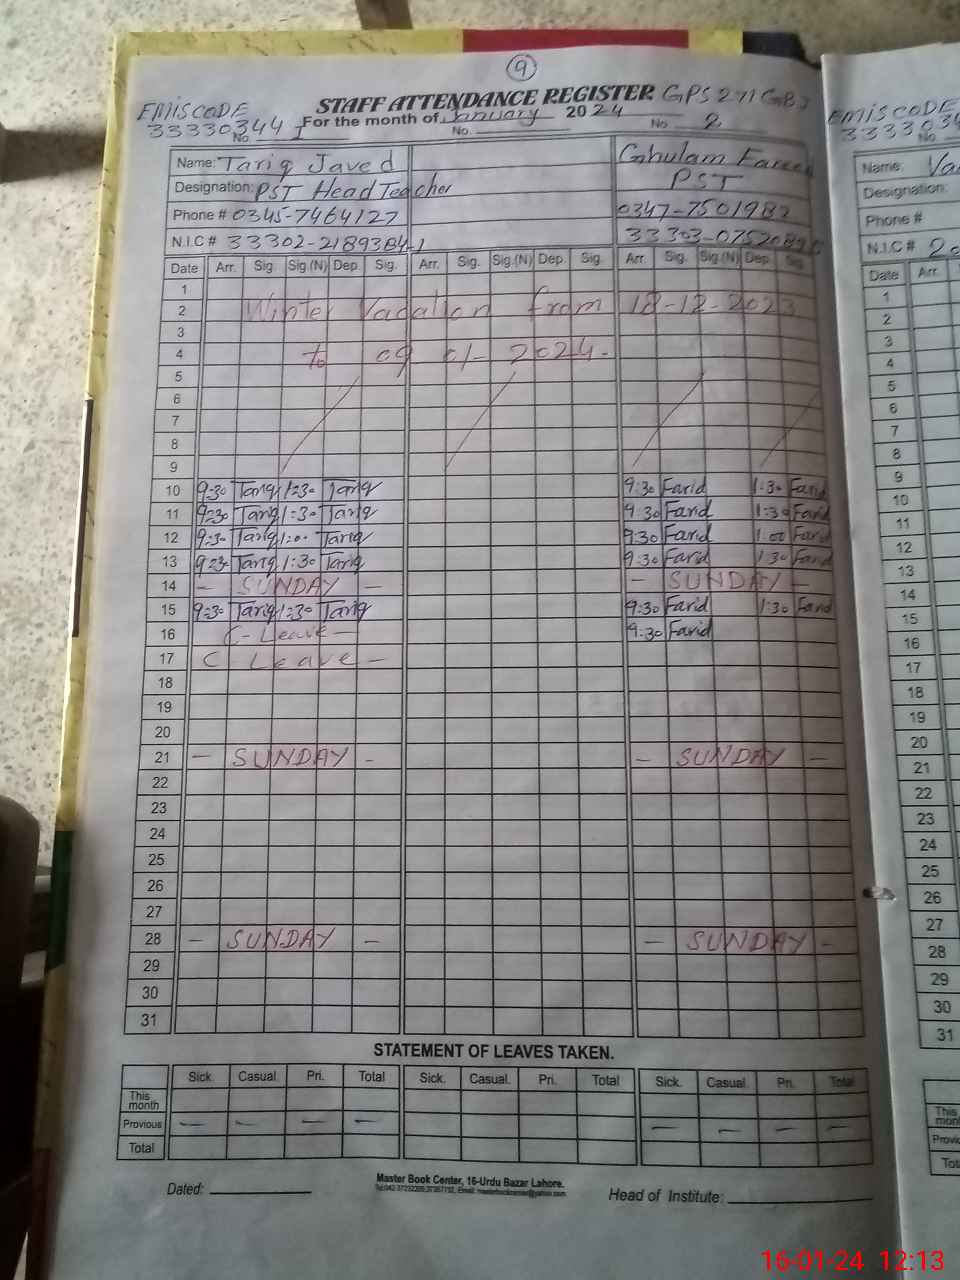 9
EMISCODE STAFF ATTENDANCE REGISTER GPS 271 GB
33330344 For the month of January 2024
No. 1 No. No 2
Name: Tariq Javed Ghulam Fareed
Designation: PST Head Teacher PST
Phone # 0345-7464127 0347-7501982
N.I.C # 33302-2189384-1 33303-0752089
Date Arr. Sig. Sig.(N) Dep. Sig. Arr. Sig. Sig.(N) Dep. Sig. Arr. Sig. Sig.(N) Dep. Sig.
1
2 Winter Vacation from 18-12-2023
3
4 to 09 01- 2024-
5
6
7
8
9
10 9:30 Tariq 1:30 Tariq 9:30 Farid 1:30 Farid
11 9:30 Tariq 1:30 Tariq 9:30 Farid 1:30 Farid
12 9:30 Tariq 1:00 Tariq 9:30 Farid 1:00 Farid
13 9:30 Tariq 1:30 Tariq 9:30 Farid 1:30 Farid
14 - SUNDAY - - SUNDAY -
15 9:30 Tariq 1:30 Tariq 9:30 Farid 1:30 Farid
16 C-Leave- 9:30 Farid
17 C Leave -
18
19
20
21 - SUNDAY - - SUNDAY -
22
23
24
25
26
27
28 - SUNDAY - - SUNDAY -
29
30
31
STATEMENT OF LEAVES TAKEN.
Sick. Casual. Pri. Total Sick. Casual. Pri. Total Sick. Casual. Pri. Total
This month
Previous - - - - - - - -
Total
Master Book Center, 16-Urdu Bazar Lahore.
Dated: Head of Institute:
EMISCODE
No
Name:
Designation:
Phone #
N.I.C #
Date Arr.
1
2
3
4
5
6
7
8
9
10
11
12
13
14
15
16
17
18
19
20
21
22
23
24
25
26
27
28
29
30
31
This
16-01-24 12:13